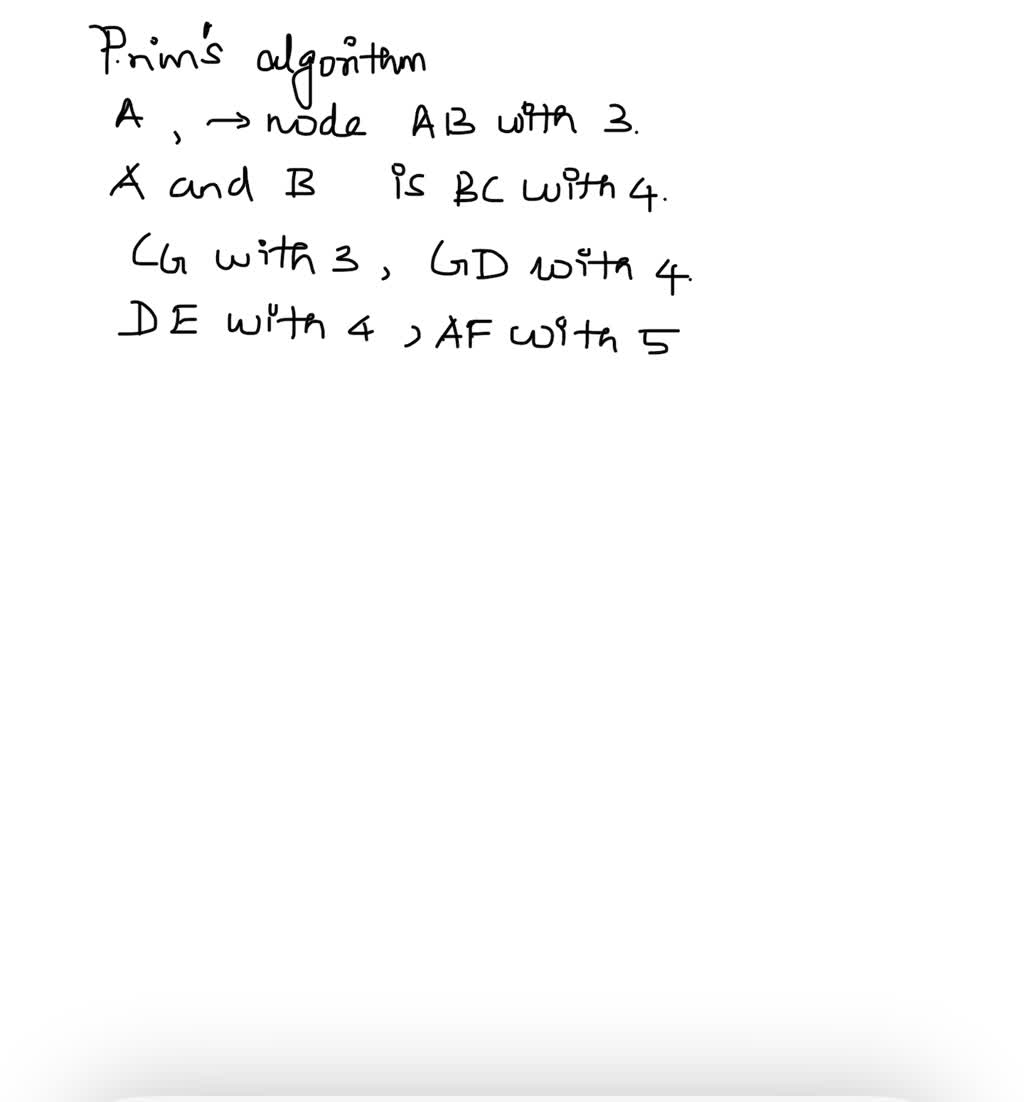 Prim's algorithm
A, → node AB with 3.
A and B is BC with 4.
CG with 3, GD with 4.
DE with 4, AF with 5